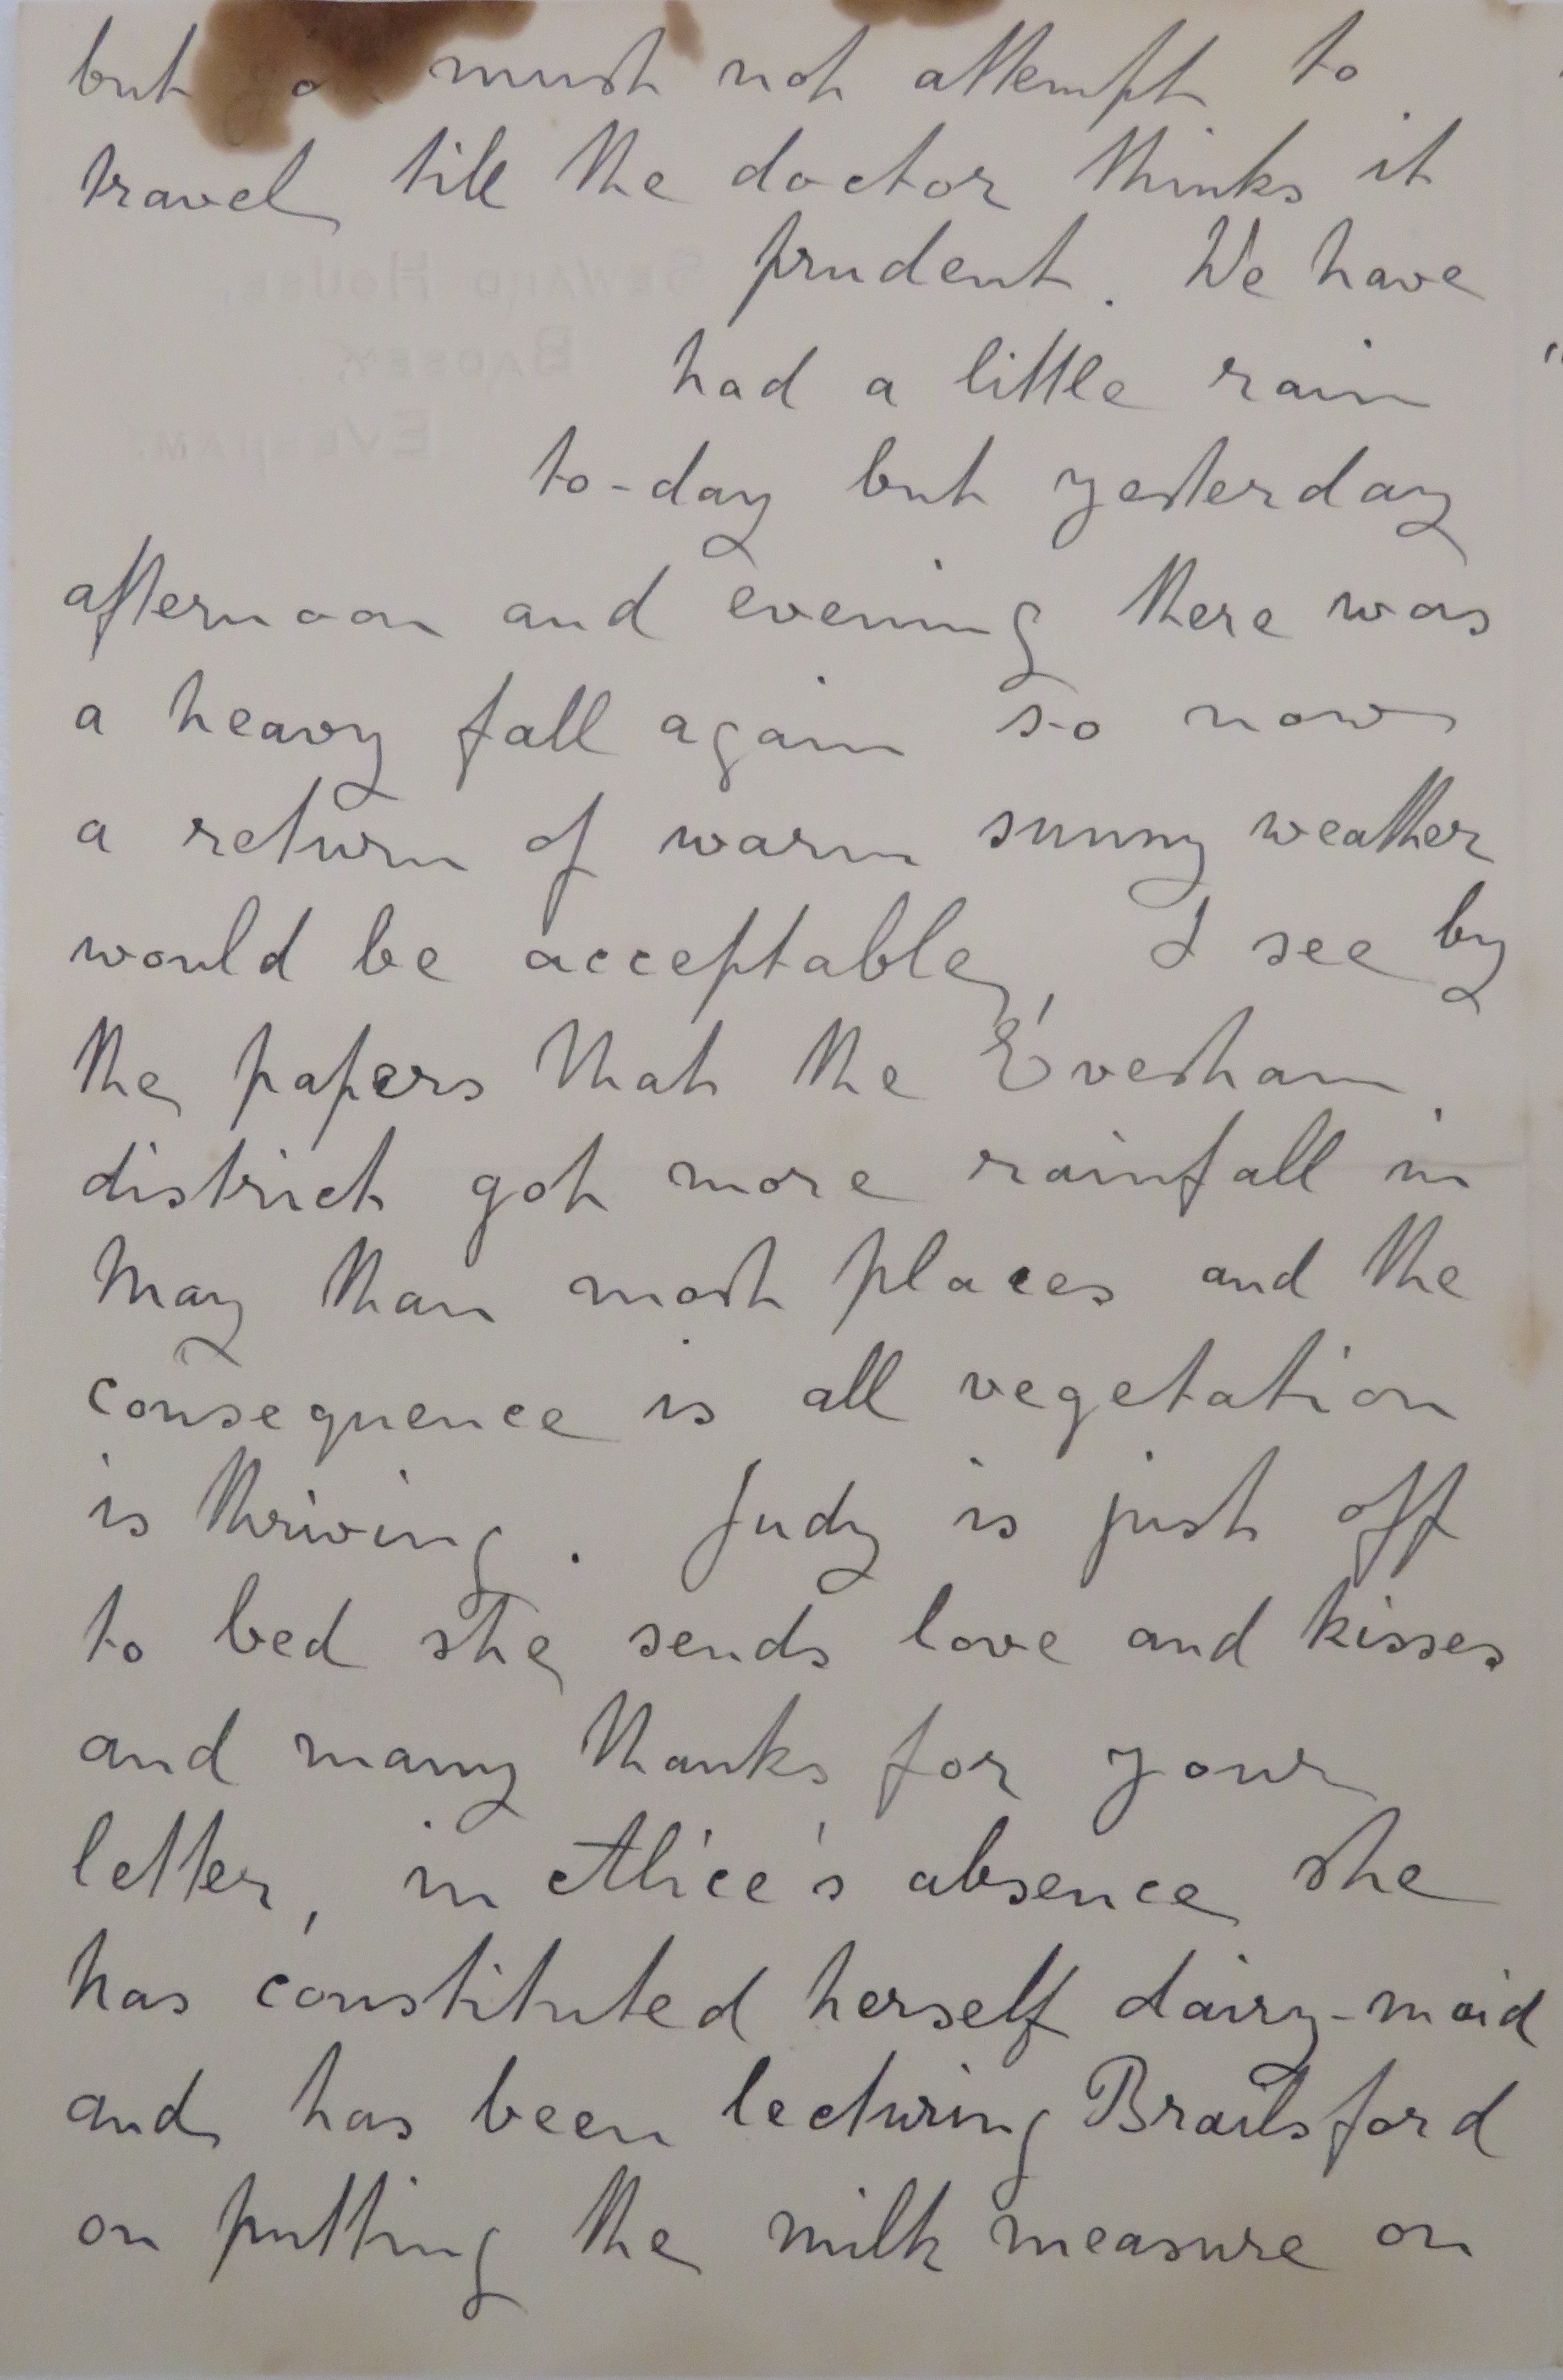 but must not attempt to
travel till the doctor thinks it
prudent. We have
had a little rain
to-day but yesterday
afternoon and evening there was
a heavy fall again so now
a return of warm sunny weather
would be acceptable, I see by
the papers that the Evesham
district got more rainfall in
May than most places and the
consequence is all vegetation
is thriving. Judy is just off
to bed she sends love and kisses
and many thanks for your
letter, in Alice's absence she
has constituted herself dairy-maid
and has been lecturing Brailsford
on putting the milk measure on
SEWARD HOUSE,
BADSEY,
EVESHAM.